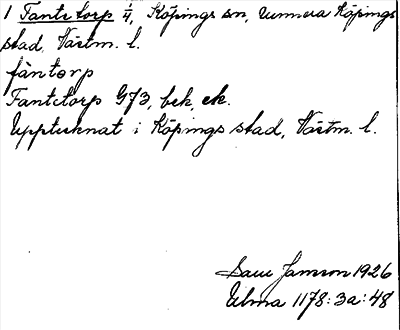 1 Fantetorp 1/4, Köpings sn, numera Köpings
stad, Västm. l.
fàntorp
Fantetorp G73, bek, ek.
Upptecknat i Köpings stad, Västm. l.
Jansson 1926
Ulma 1178:3a:48